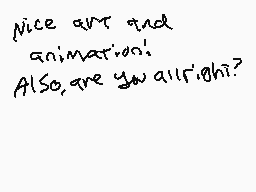 Nice art and
animation!
Also, are you allright?